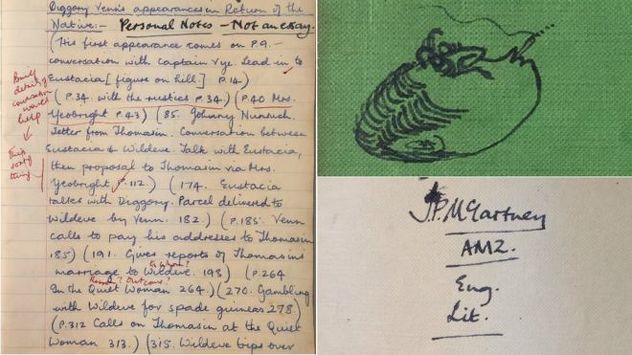 Diggory Venn's appearances in Return of the
Native:- Personal Notes - Not an essay.
(His first appearance comes on P.9. -
conversation with Captain Vye. Lead in to
Eustacia [figure on hill] P.14)
(P.34. with the rustics P.34.) (P.40 Mrs.
Yeobright P.43) (85. Johnny Nunsuch
Letter from Thomasin. Conversation between
Eustacia & Wildeve. Talk with Eustacia,
then proposal to Thomasin via Mrs.
Yeobright P.112) (174. Eustacia
talks with Diggory. Parcel delivered to
Wildeve by Venn. 182.) (P.185. Venn
calls to pay his addresses to Thomasin
185) (191. Gives reports of Thomasin's
marriage to Wildeve. 193) (P.264
In the Quiet Woman 264.) (270. Gambling
with Wildeve for spade guineas 278)
(P.312 Calls on Thomasin at the Quiet
Woman 313.) (315. Wildeve trips over
Brief
details of
conversation
would
help
this
sort of
thing
to whom?
Reason? Outcome?
J.P. McCartney
AM2.
Eng.
Lit.